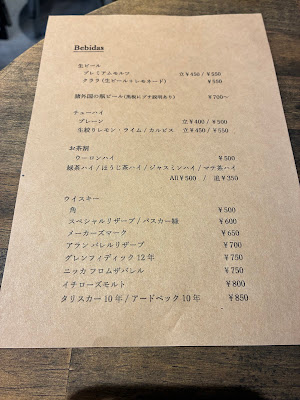 Bebidas
生ビール
プレミアムモルツ 立¥450 / ¥550
クララ (生ビール+レモネード) ¥550
諸外国の瓶ビール(黒板にプチ説明あり) ¥700~
チューハイ
プレーン 立¥400 / ¥500
生搾りレモン・ライム / カルピス 立¥450 / ¥550
お茶割
ウーロンハイ ¥500
緑茶ハイ / ほうじ茶ハイ / ジャスミンハイ / マテ茶ハイ
All¥500 / ¥350
ウイスキー
角 ¥500
スペシャルリザーブ / バスカー緑 ¥600
メーカーズマーク ¥650
アラン バレルリザーブ ¥700
グレンフィディック 12 年 ¥750
ニッカ フロムザバレル ¥750
イチローズモルト ¥800
タリスカー 10 年 / アードベック 10 年 ¥850